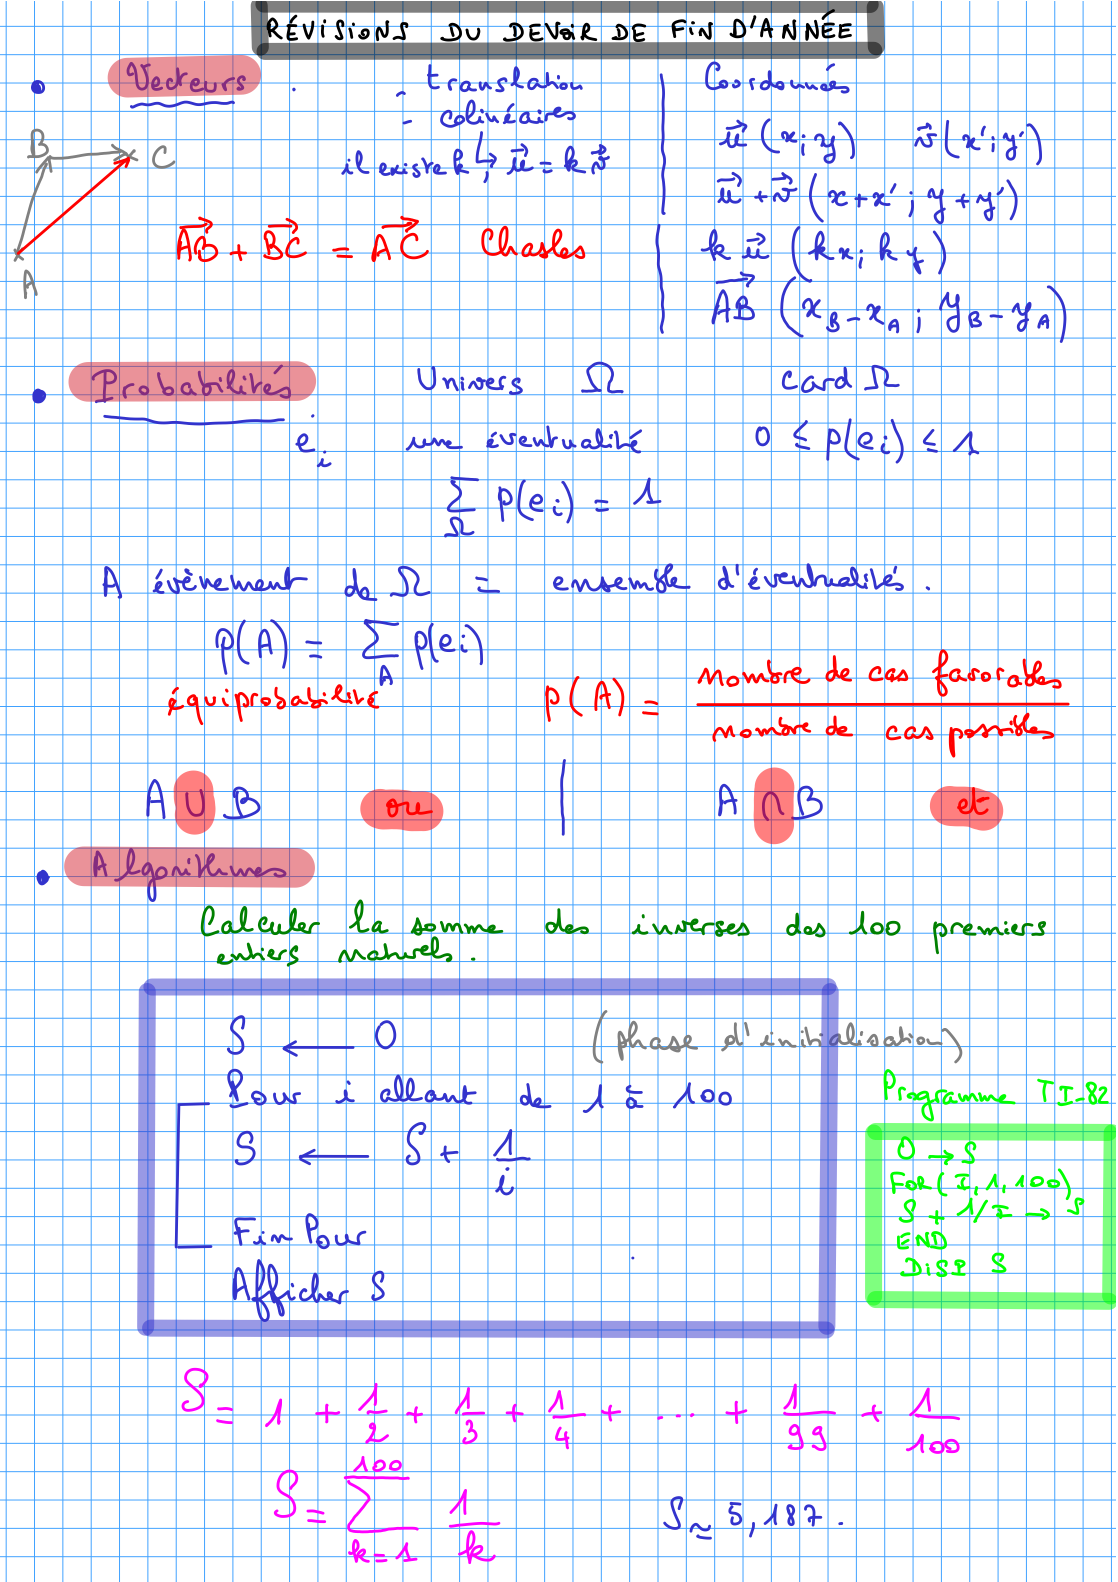 RÉVISIONS DU DEVOIR DE FIN D'ANNÉE
• Vecteurs
- translation
- colinéaires
il existe k, ↳ u⃗ = k v⃗
B C
A
AB⃗ + BC⃗ = AC⃗ Chasles
Coordonnées
u⃗ (x; y) v⃗ (x'; y')
u⃗ + v⃗ (x + x' ; y + y')
k u⃗ (kx; ky)
AB⃗ (x_B - x_A ; y_B - y_A)
• Probabilités Univers Ω card Ω
e_i une éventualité 0 ≤ p(e_i) ≤ 1
∑_Ω p(e_i) = 1
A évènement de Ω = ensemble d'éventualités.
p(A) = ∑_A p(e_i)
équiprobabilité p(A) = nombre de cas favorables / nombre de cas possibles
A ∪ B ou | A ∩ B et
• Algorithmes
Calculer la somme des inverses des 100 premiers
entiers naturels.
S ← 0 (phase d'initialisation)
Pour i allant de 1 à 100
S ← S + 1/i
Fin Pour
Afficher S
Programme TI-82
0 → S
FOR(I,1,100)
S + 1/I → S
END
DISP S
S = 1 + 1/2 + 1/3 + 1/4 + ... + 1/99 + 1/100
S = ∑_{k=1}^{100} 1/k S ≃ 5,187.